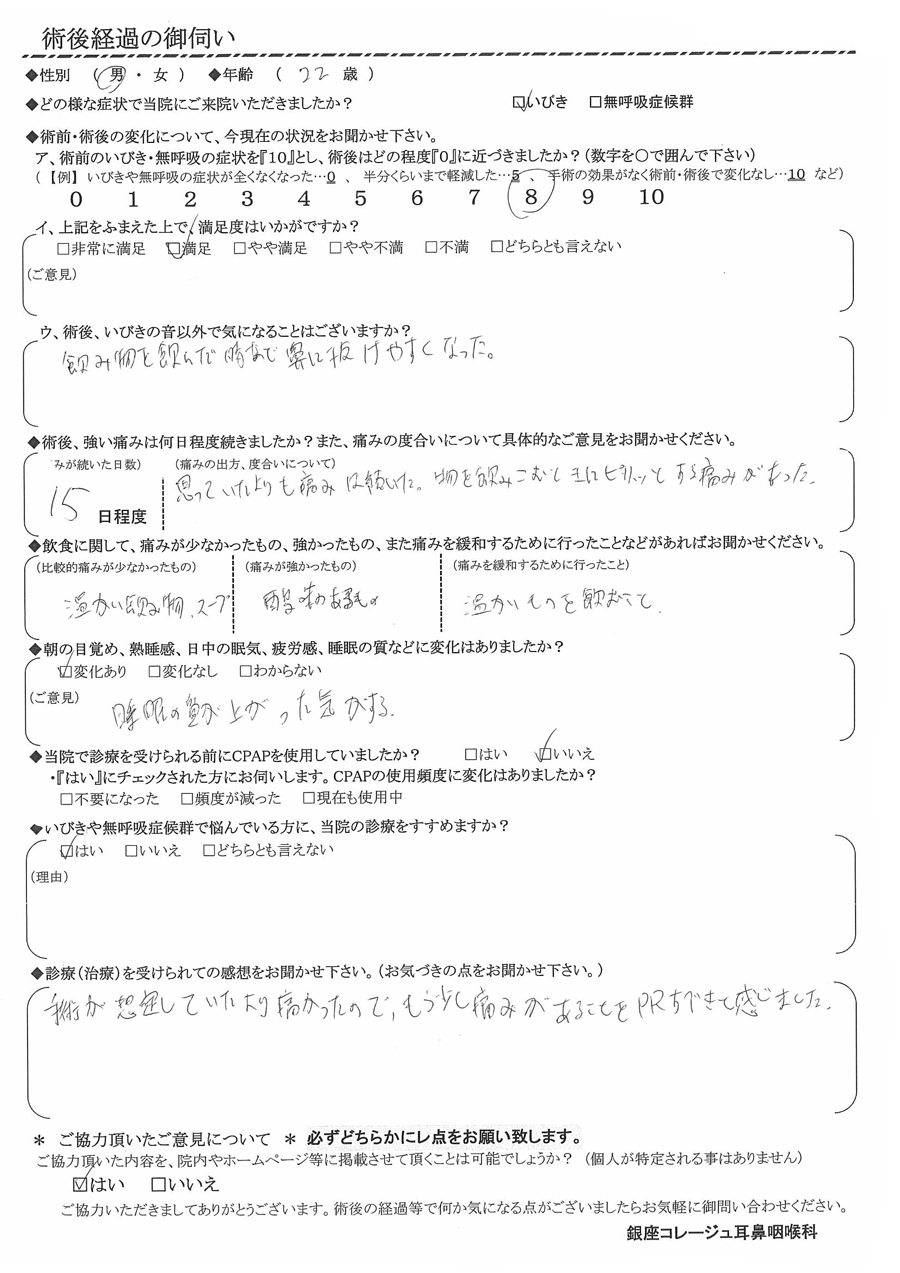 術後経過の御伺い
◆性別 （ 男 ・ 女 ） ◆年齢 （ 22 歳 ）
◆どの様な症状で当院にご来院いただきましたか？ ☑いびき □無呼吸症候群
◆術前・術後の変化について、今現在の状況をお聞かせ下さい。
ア、術前のいびき・無呼吸の症状を『10』とし、術後はどの程度『0』に近づきましたか？（数字を〇で囲んで下さい）
（ 【例】 いびきや無呼吸の症状が全くなくなった…0 、 半分くらいまで軽減した…5 、 手術の効果がなく術前・術後で変化なし…10 など）
0 1 2 3 4 5 6 7 8 9 10
イ、上記をふまえた上で、満足度はいかがですか？
□非常に満足 ☑満足 □やや満足 □やや不満 □不満 □どちらとも言えない
（ご意見）
ウ、術後、いびきの音以外で気になることはございますか？
飲み物を飲んだ時など鼻に抜けやすくなった。
◆術後、強い痛みは何日程度続きましたか？また、痛みの度合いについて具体的なご意見をお聞かせください。
みが続いた日数） （痛みの出方、度合いについて）
思っていたよりも痛みは続いた。物を飲みこむときにピリッとする痛みがあった。
15 日程度
◆飲食に関して、痛みが少なかったもの、強かったもの、また痛みを緩和するために行ったことなどがあればお聞かせください。
（比較的痛みが少なかったもの） （痛みが強かったもの） （痛みを緩和するために行ったこと）
温かい飲み物、スープ 酸味のあるもの 温かいものを飲むこと。
◆朝の目覚め、熟睡感、日中の眠気、疲労感、睡眠の質などに変化はありましたか？
☑変化あり □変化なし □わからない
（ご意見）
睡眠の質が上がった気がする。
◆当院で診療を受けられる前にCPAPを使用していましたか？ □はい ☑いいえ
・『はい』にチェックされた方にお伺いします。CPAPの使用頻度に変化はありましたか？
□不要になった □頻度が減った □現在も使用中
◆いびきや無呼吸症候群で悩んでいる方に、当院の診療をすすめますか？
☑はい □いいえ □どちらとも言えない
（理由）
◆診療（治療）を受けられての感想をお聞かせ下さい。（お気づきの点をお聞かせ下さい。）
手術が想定していたより痛かったので、もう少し痛みがあることをPRすべきと感じました。
＊ ご協力頂いたご意見について ＊ 必ずどちらかにレ点をお願い致します。
ご協力頂いた内容を、院内やホームページ等に掲載させて頂くことは可能でしょうか？ （個人が特定される事はありません）
☑はい □いいえ
ご協力いただきましてありがとうございます。術後の経過等で何か気になる点がございましたらお気軽に御問い合わせください。
銀座コレージュ耳鼻咽喉科